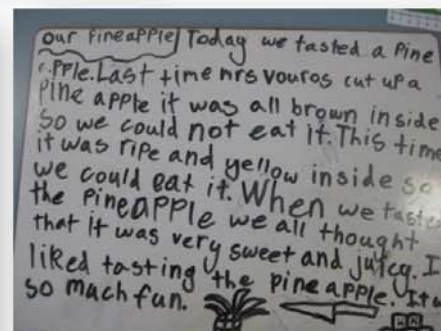 our Pineapple Today we tasted a Pine
apple. Last time mrs vouros cut up a
Pine apple it was all brown inside
So we could not eat it. This time
it was ripe and yellow inside so
we could eat it. When we taste
the PineaPPle we all thought
that it was very sweet and juicy. I
liked tasting the pineapple. It
so much fun.